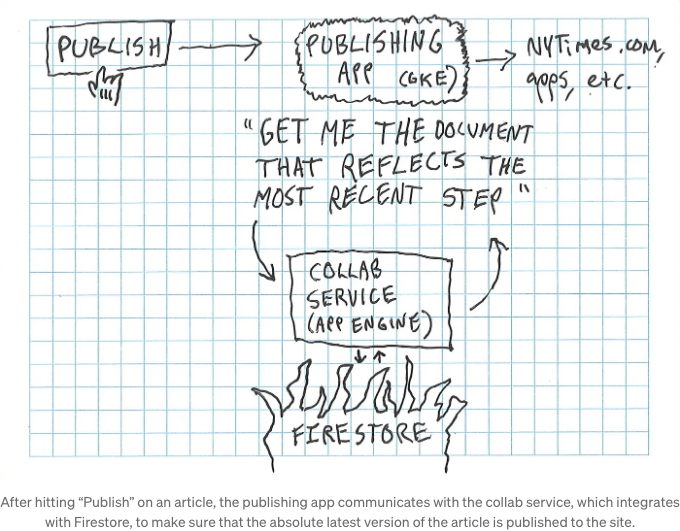 PUBLISH
PUBLISHING
APP (GKE)
NYTimes.com,
apps, etc.
"GET ME THE DOCUMENT
THAT REFLECTS THE
MOST RECENT STEP"
COLLAB
SERVICE
(APP ENGINE)
FIRESTORE
After hitting “Publish” on an article, the publishing app communicates with the collab service, which integrates
with Firestore, to make sure that the absolute latest version of the article is published to the site.